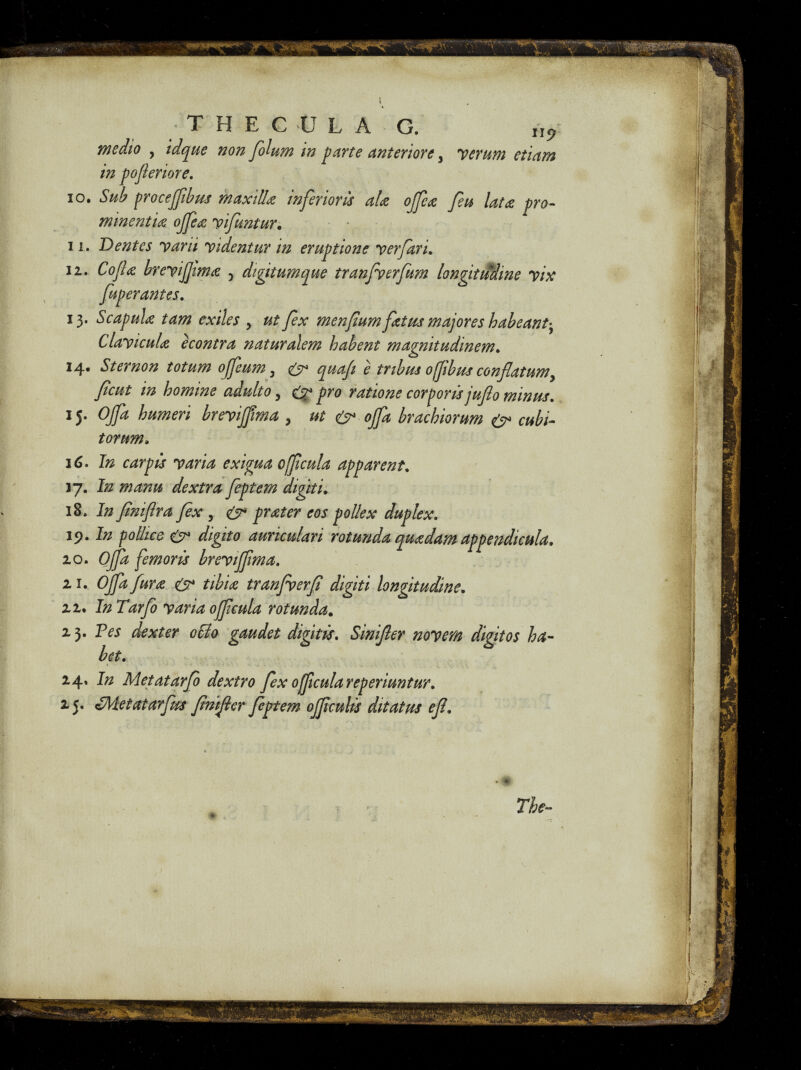 THECULA G. 119
medio , idque non ſolum in parte anteriore, verum etiam
in poſteriore.
10. Sub proceſſibus maxillæ inferioris alæ oſſeæ ſeu latæ pro-
minentiæ oſſeæ viſuntur.
11. Dentes varii videntur in eruptione verſari.
12. Coſtæ breviſſimæ , digitumque tranſverſum longitudine vix
ſuperantes.
13. Scapulæ tam exiles , ut ſex menſium fætus majores habeant;
Claviculæ ècontra naturalem habent magnitudinem.
14. Sternon totum oſſeum, & quaſi è tribus oſſibus conflatum,
ſicut in homine adulto, & pro ratione corporis juſto minus.
15. Oſſa humeri breviſſima , ut & oſſa brachiorum & cubi-
torum.
16. In carpis varia exigua oſſicula apparent.
17. In manu dextra ſeptem digiti.
18. In ſiniſtra ſex , & præter eos pollex duplex.
19. In pollice & digito auriculari rotunda quædam appendicula.
20. Oſſa femoris breviſſima.
21. Oſſa ſuræ & tibiæ tranſverſi digiti longitudine.
22. In Tarſo varia oſſicula rotunda.
23. Pes dexter octo gaudet digitis. Siniſter novem digitos ha-
bet.
24. In Metatarſo dextro ſex oſſicula reperiuntur.
25. Metatarſus ſiniſter ſeptem oſſiculis ditatus eſt.
The-